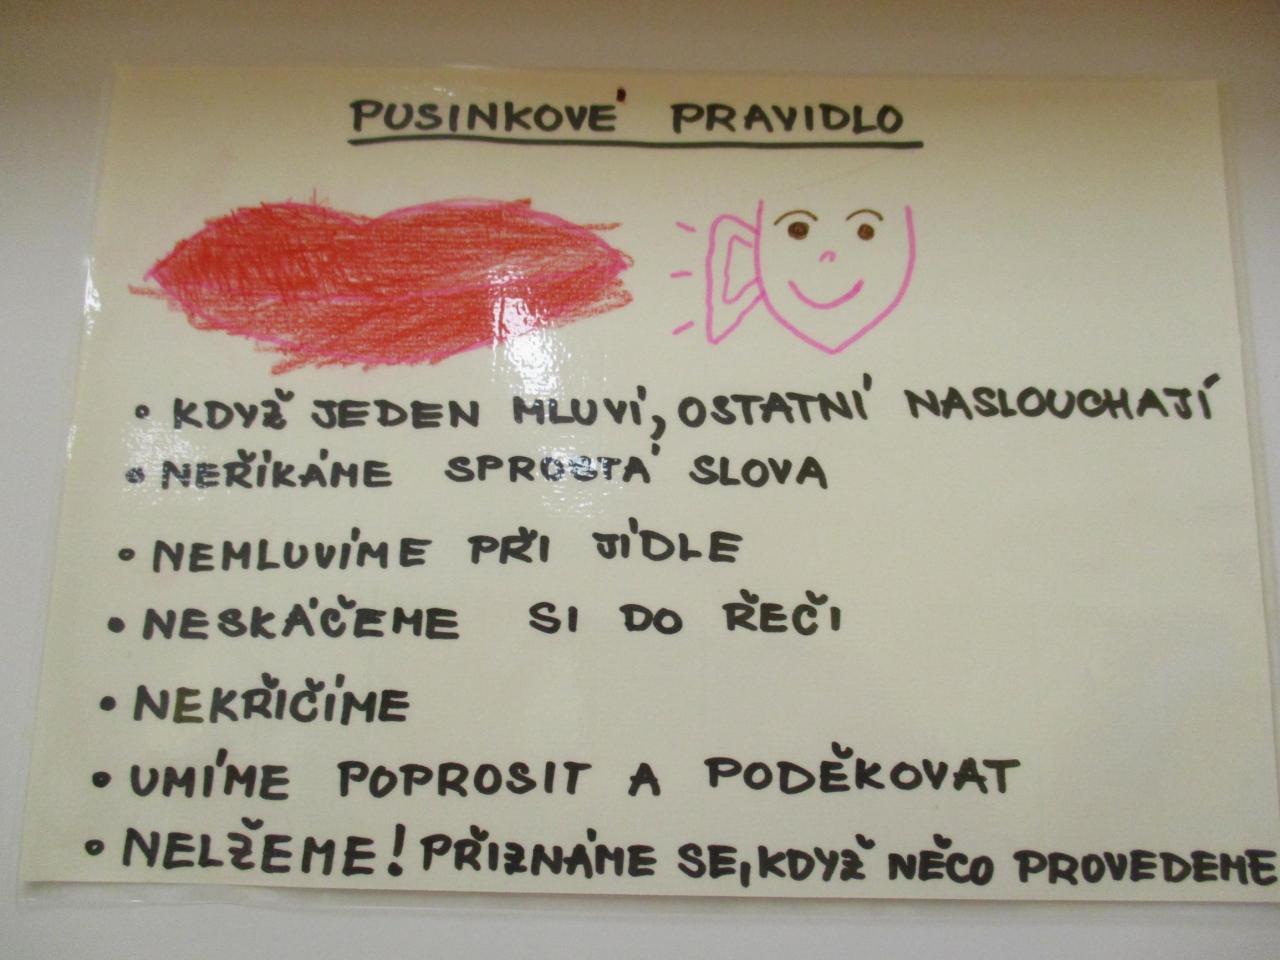 PUSINKOVÉ PRAVIDLO
• KDYŽ JEDEN MLUVÍ, OSTATNÍ NASLOUCHAJÍ
• NEŘÍKÁME SPROSTÁ SLOVA
• NEMLUVÍME PŘI JÍDLE
• NESKÁČEME SI DO ŘEČI
• NEKŘIČÍME
• UMÍME POPROSIT A PODĚKOVAT
• NELŽEME! PŘIZNÁME SE, KDYŽ NĚCO PROVEDEME